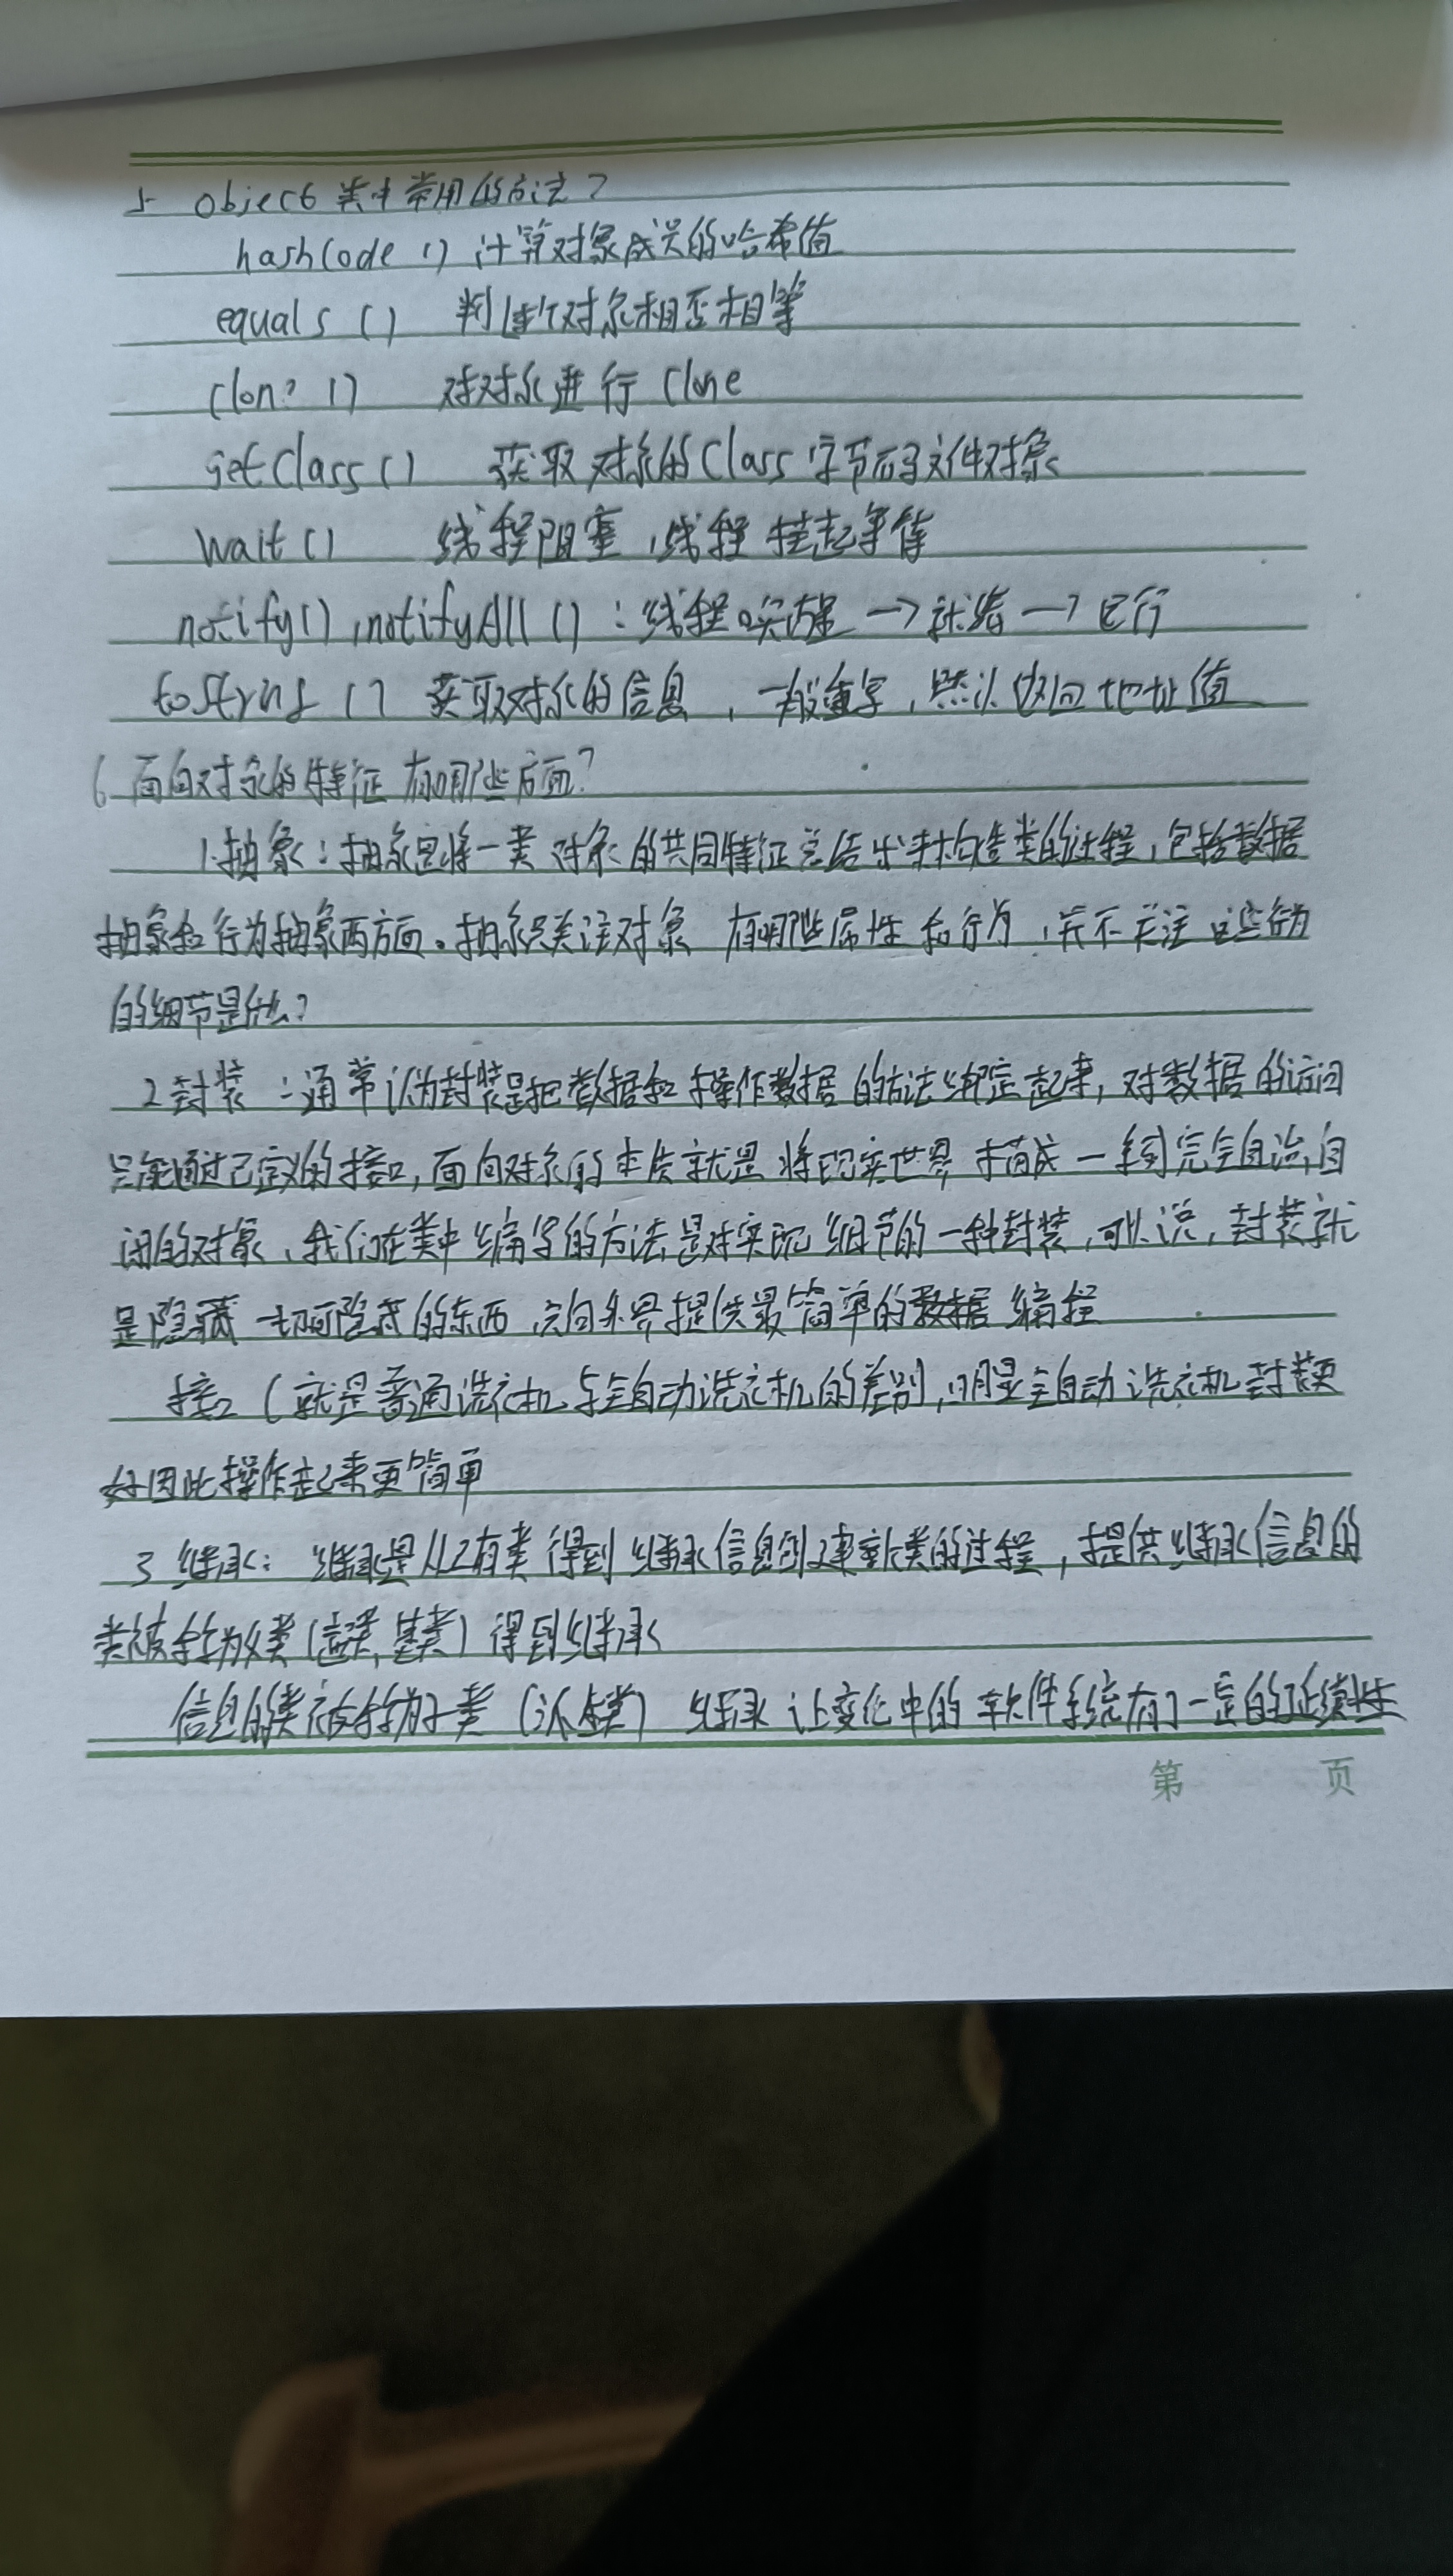 5 Object 类中常用的方法?
hashCode () 计算对象成员的哈希值
equals () 判断对象相否相等
clone () 对对象进行 Clone
getClass () 获取对象的Class字节码文件对象
wait () 线程阻塞,线程挂起等待
notify(),notifyAll():线程唤醒→就绪→运行
toString () 获取对象的信息,一般重写,默认返回地址值
6 面向对象的特征有哪些方面?
1.抽象:抽象是将一类对象的共同特征总结出来构造类的过程,包括数据
抽象和行为抽象两方面。抽象只关注对象 有哪些属性和行为,并不关注这些行为
的细节是什么?
2 封装:通常认为封装是把数据和操作数据的方法绑定起来,对数据的访问
只能通过已定义的接口,面向对象的本质就是将现实世界描成一系列完全自治,自
闭的对象、我们在类中编写的方法是对实现细节的一种封装,可以说,封装就
是隐藏一切可隐藏的东西,向外界提供最简单的数据编程
接口(就是普通洗衣机与全自动洗衣机的差别,明显全自动洗衣机封装更
好因此操作起来更简单
3 继承:继承是从已有类得到继承信息创建新类的过程,提供继承信息的
类被称为父类(超类,基类)得到继承
信息的类被称为子类(派生类)继承让变化中的软件系统有了一定的延续性
第 页